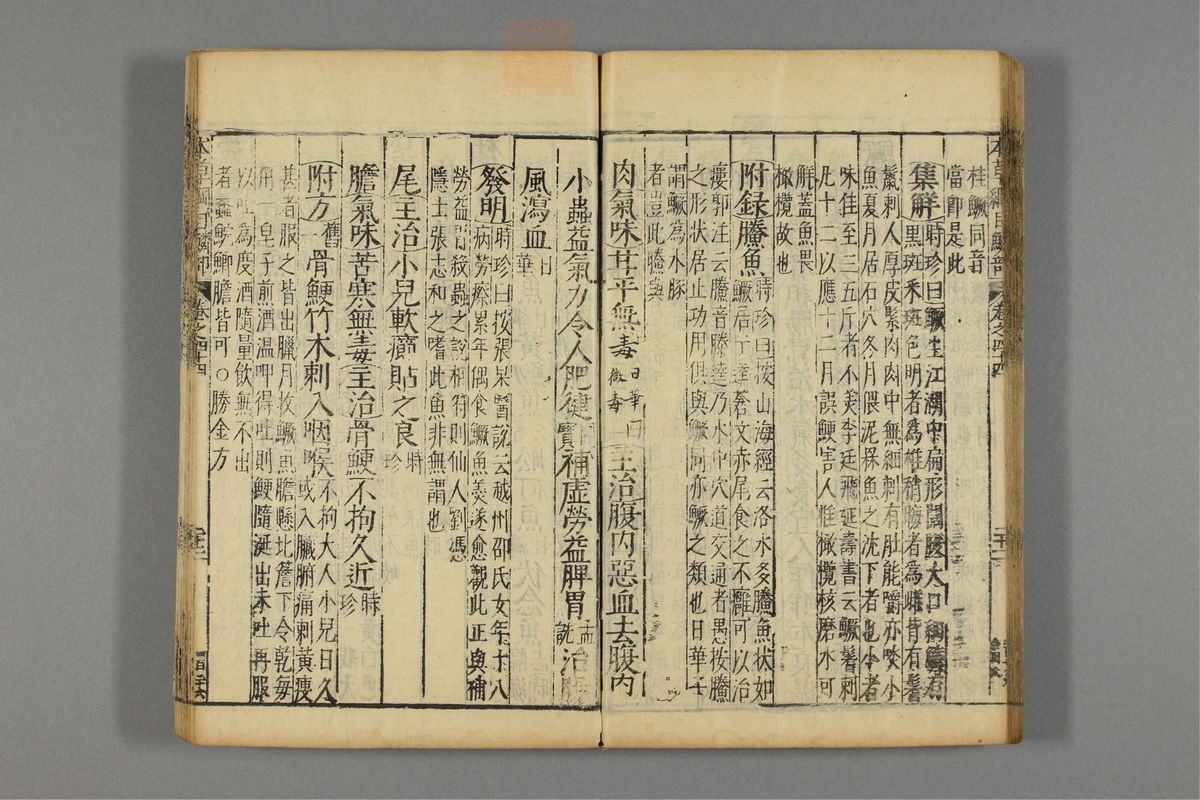 本草綱目鱗部 卷之四十四
桂鱖同音
當卽是此
集解 時珍曰鱖生江湖中扁形闊腹大口細鱗有
黑斑釆斑色明者為雄稍晦者為雌皆有鬐
鬣刺人厚皮緊肉肉中無細刺有肚能嚼亦啖小
魚夏月居石穴冬月偎泥罧魚之沈下者也小者
味佳至三五斤者不美李廷飛延壽書云鱖鬐刺
凡十二以應十二月誤鯁害人惟橄欖核磨水可
解蓋魚畏
橄欖故也
附錄䲢魚 時珍曰按山海經云洛水多䲢魚狀如
鱖居于逵蒼文赤尾食之不癰可以治
瘻郭注云䲢音滕逵乃水中穴道交通者愚按䲢
之形狀居止功用俱與鱖同亦鱖之類也日華子
謂鱖為水豚
者豈此䲢與
肉氣味甘平無毒 日華曰微毒 主治腹內惡血去腹內
小蟲益氣力令人肥健 開寶 補虛勞益脾胃 孟詵 治腸
風瀉血 日華
發明 時珍曰按張杲醫說云越州邵氏女年十八
病勞瘵累年偶食鱖魚羹遂愈觀此正與補
勞益胃殺蟲之說相符則仙人劉憑
隱士張志和之嗜此魚非無謂也
尾主治小兒軟癤貼之良 時珍
膽氣味苦寒無毒主治骨鯁不拘久近 時珍
附方 舊一 骨鯁竹木刺入咽喉 不拘大人小兒日久
或入臟腑痛刺黃瘦
甚者服之皆出臘月收鱖魚膽懸北簷下令乾每
用一皂子煎酒溫呷得吐則鯁隨涎出未吐再服
以吐為度酒隨量飲無不出
者蠡鯇鯽膽皆可○勝金方
本草綱目鱗部 卷之四十四